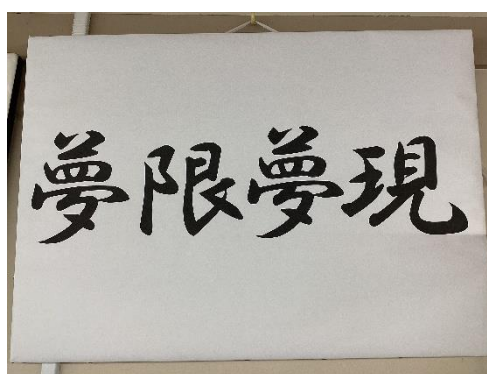 夢限夢現